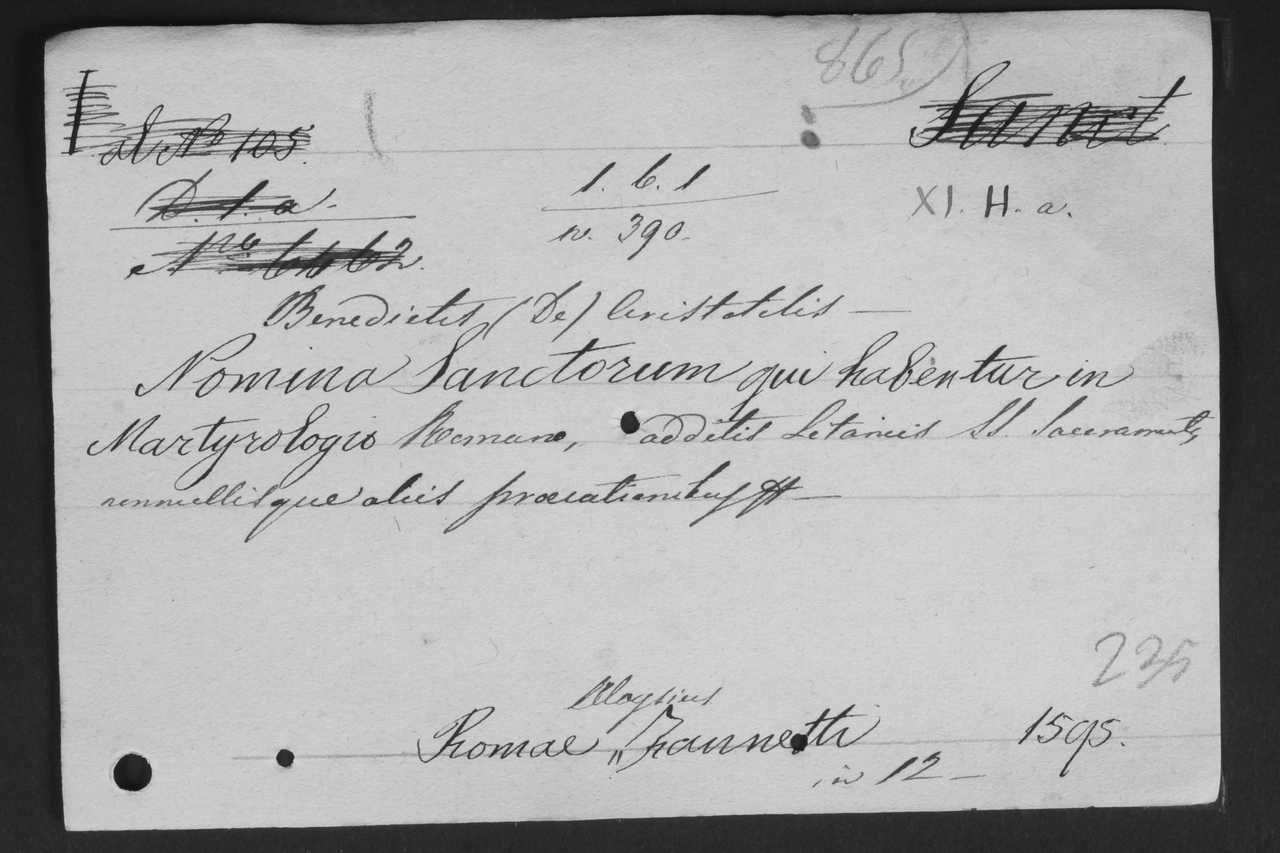 865
Sanct
al Nº 105.
D. 1. a.
1. b. 1
n. 390.
XI. H. a.
Nro 6462.
Benedictis (De) Aristotelis —
Nomina Sanctorum qui habentur in
Martyrologio Romano, additis Letaniis SS. Sacramenti,
nonnullisque aliis precationibus —
235
Aloysius
Romae, Zannetti 1595.
in 12 —